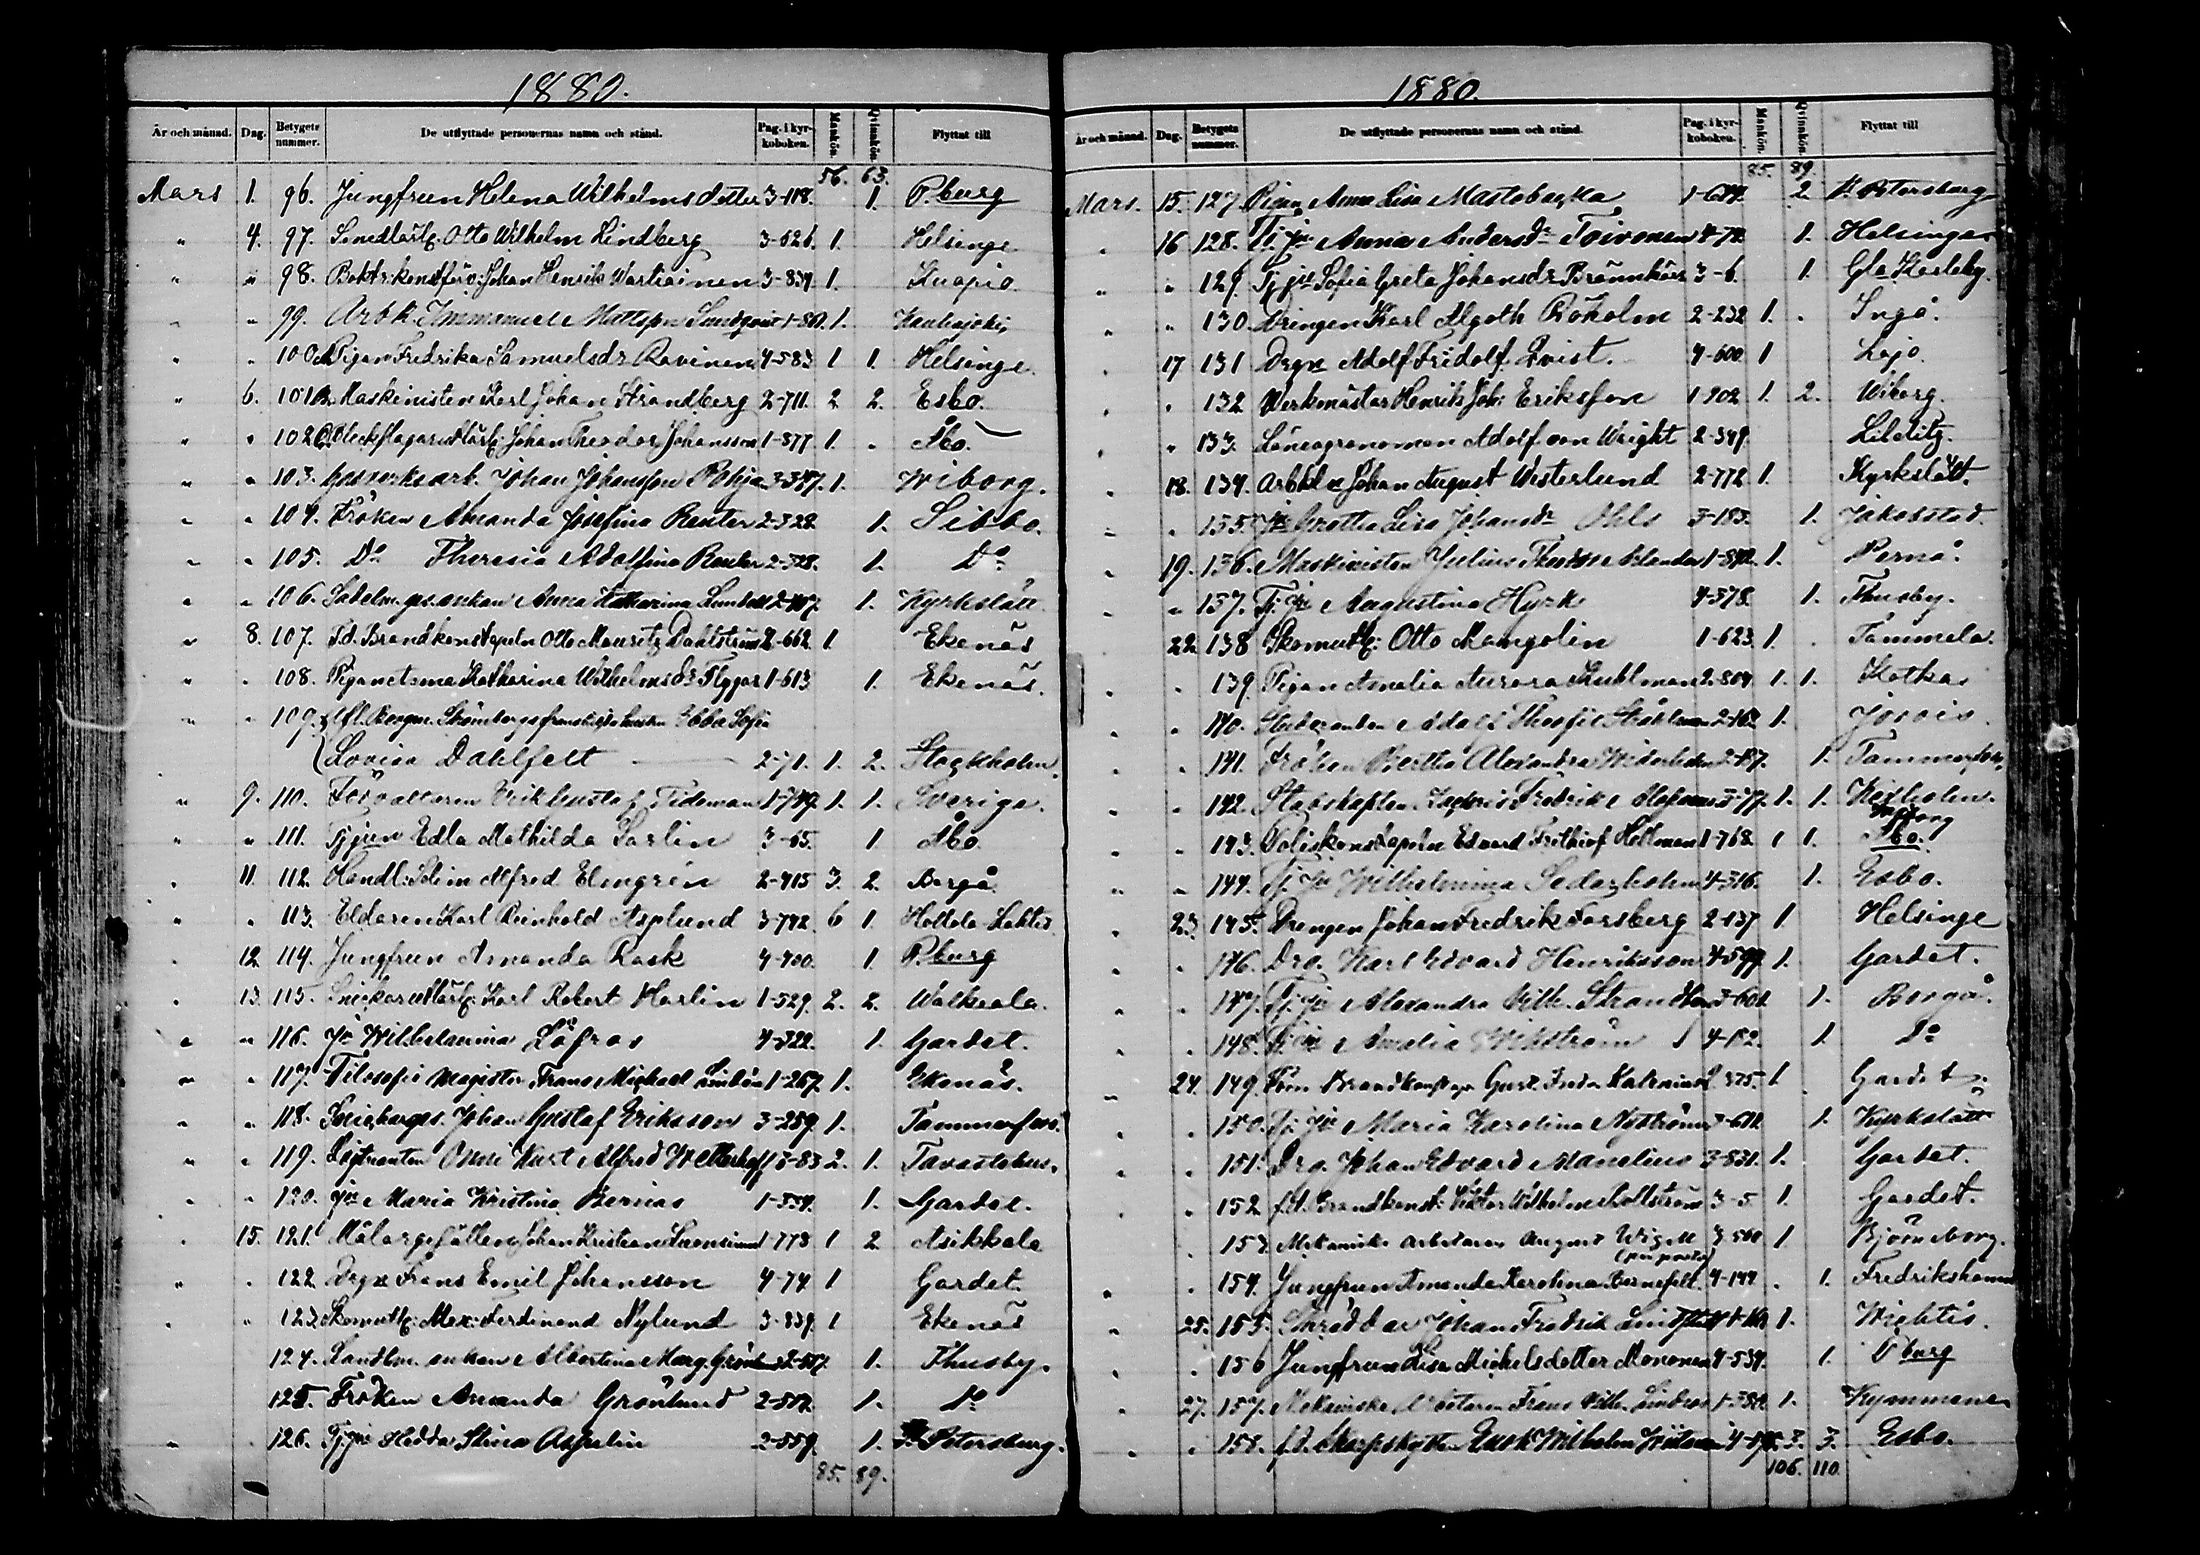 1880.
År och månad. Dag. Betygets nummer. De utflyttade personernas namn och stånd. Pag. i kyrkoboken. Mankön. Qvinnkön. Flyttat till
56. 63.
Mars 1. 96. Jungfrun Helena Wilhelmsdotter 3-118. 1. P.burg
" 4. 97. Smedlärl. Otto Wilhelm Lindberg 3-626. 1. Helsinge
" " 98. Johan Henrik Wartiainen 3-834. 1. Kuopio
" " 99. Arbk. Immanuel Mattsson 1. Kauhajoki
" " 100 Pigan Fredrika Samuelsdr Ravinen 4-583 1 1. Helsinge.
" 6. 101 Maskinisten Karl Johan Strandberg 2-711. 2 2. Esbo.
" " 102 Johan Theodor Johansson 1-877 1. Åbo
" " 103. Gasverksarb. Johan Johansson Pohja 3-347. 1. Wiborg.
" " 104. Fröken Amanda Josefina Reuter 2-328 1. Sibbo.
" " 105. Do Theresia Adolfina Reuter 2-328. 1. Do
" " 106. Sadelm. ges. enkan Anna Katharina 1. Kyrkslätt
" 8. 107. Fd. Brandkonstapeln Otto Mauritz Dahlström 2-662. 1 Ekenäs
" " 108. Pigan Katharina Wilhelmsdr Flygar 1-613 1. Ekenäs.
" " 109. Ebba Sofia
Lovisa Dahlfelt 2-71. 1. 2. Stockholm.
" 9. 110. Förvaltaren Erik Gustaf Tideman 1-749. 1. 1. Sverige.
" " 111. Tjjun Edla Mathilda Sarlin 3-65. 1 Åbo.
" 11. 112. Handl: Alfred Elmgrén 2-415 3. 2. Borgå
" " 113. Eldaren Karl Reinhold Asplund 3-792 6 1. Hollola Lahtis
" 12. 114. Jungfrun Amanda Rask 4-400. 1. P.burg
" 13. 115. Karl Robert Harlin 1-529. 2. 2. Walkeala.
" " 116. Jfr Wilhelmina Löfroos 4-322. 1. Gardet.
" " 117. Filosofie Magister Frans Michael 1-267. 1. Ekenäs.
" " 118. Johan Gustaf Eriksson 3-259. 1. Tammerfors.
" " 119. Kurt Alfred Wetterhoff 3-83 2. 1. Tavastehus.
" " 120. Jfr Maria Kristina 1-334. 1. Gardet.
" 15. 121. Målaregesällen Johan Kristian 1-773 1 2 Asikkala
" " 122 Drgn Frans Emil Johansson 4-74 1 Gardet.
" " 123. Alex. Ferdinand Nylund 3-839. 1 Ekenäs
124. Landtm. enkan Albertina Marg. 2-517. 1. Thusby.
125. Fröken Amanda Grönlund 2-517. 1. Do
" " 126. Tjjfr Hedda Stina Aspelin 2-559. 1. Petersburg.
85. 89.
1880.
År och månad. Dag. Betygets nummer. De utflyttade personernas namn och stånd. Pag. i kyrkoboken. Mankön. Qvinnkön. Flyttat till
85. 89.
Mars. 15. 127 Pigan Anna Lisa 2 St Petersburg
" 16 128. Tj. jfr Anna Andersdr Toivonen 4-72. 1. Helsinge.
" " 129. Tjjfr Sofia Greta Johansdr Brännkärr 3-6. 1. Gla Karleby.
" " 130. Drengen Karl Algoth Röholm 2-232 1. Ingå.
" 17 131 Drgn Adolf Fridolf Qvist. 4-600 1 Lojo.
" " 132 Werkmästar Henrik Joh: Eriksson 1-902 1. 2. Wiborg.
" " 133. Länsagronomen Adolf von Wright 2-349. Libelitz.
" 18. 134. Johan August Westerlund 2-772 1. Kyrkslätt.
" 135. Jfr Lisa Johansdr Ohls 3-183. 1. Jakobstad.
" 19. 136. Maskinisten Julius Theodor 1. Pernå.
" " 137. Tj. jfr Augustina Hyrk 4-378. 1. Thusby.
22 138 Otto Mangolin 1-623. 1. Tammela.
" " 139. Pigan Amalia Aurora Kuhlman 2-804 1. 1. Kotka
" " 140. Studeranden Adolf Theofil 2-162 1. Jorois
" " 141. Fröken Bertha Alexandra 1. Tammerfors.
" " 142. Stabskapten Fredrik 1. 1. Kexholm.
Wiborg
" " 143. Poliskonstapeln Edvard Frithiof Hellman 1-768. 1 1. Åbo.
" " 144. Tj. jfr Wilhelmina Söderholm 4-316. 1. Esbo.
" 23. 145. Drengen Johan Fredrik Forsberg 2-137 1. Helsinge
" " 146. Drg. Karl Edvard Henriksson 4-599 1. Gardet.
" " 147. Tj. jfr Alexandra Wilh. 1. Borgå.
" " 148. Tj. jfr Amalia Wikström 4-12. 1. Do
" 24. 149. 375. 1. Gardet.
" " 150. Tj. jfr Maria Karolina Nyström 3-611. 1. Kyrkslätt
" " 151. Drg. Johan Edvard Manelius 3-831. 1. Gardet.
" " 152. fd. Brandkonst: Viktor Wilhelm 3-5 1. Gardet.
" " 153. Mekaniske arbetaren August Wigell 3-500 1 Björneborg.
(per posta)
" " 154. Jungfrun Amanda Karolina 4-144 1. Fredrikshamn
" 25. 155. Johan Fredrik 1. Wichtis.
" " 156 Jungfrun Lisa Michelsdotter Mononen 4-534. 1. P.burg
" 27. 157. Mekaniske Arbetaren Frans Wilh. 1-384. 1. Kymmene
" " 158. f.d. Skarpskytten Wilhelm 3. 3. Esbo.
106. 110.